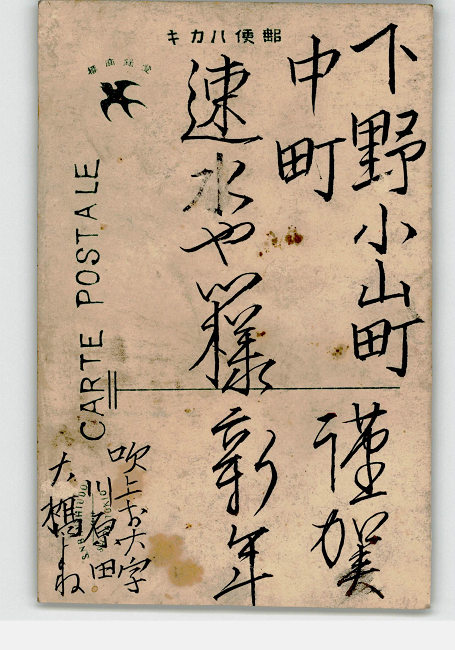 郵便ハカキ
下野小山町
中町
速水や㐂様
謹賀
新年
吹上お大字
川原田
大橋よね
CARTE POSTALE